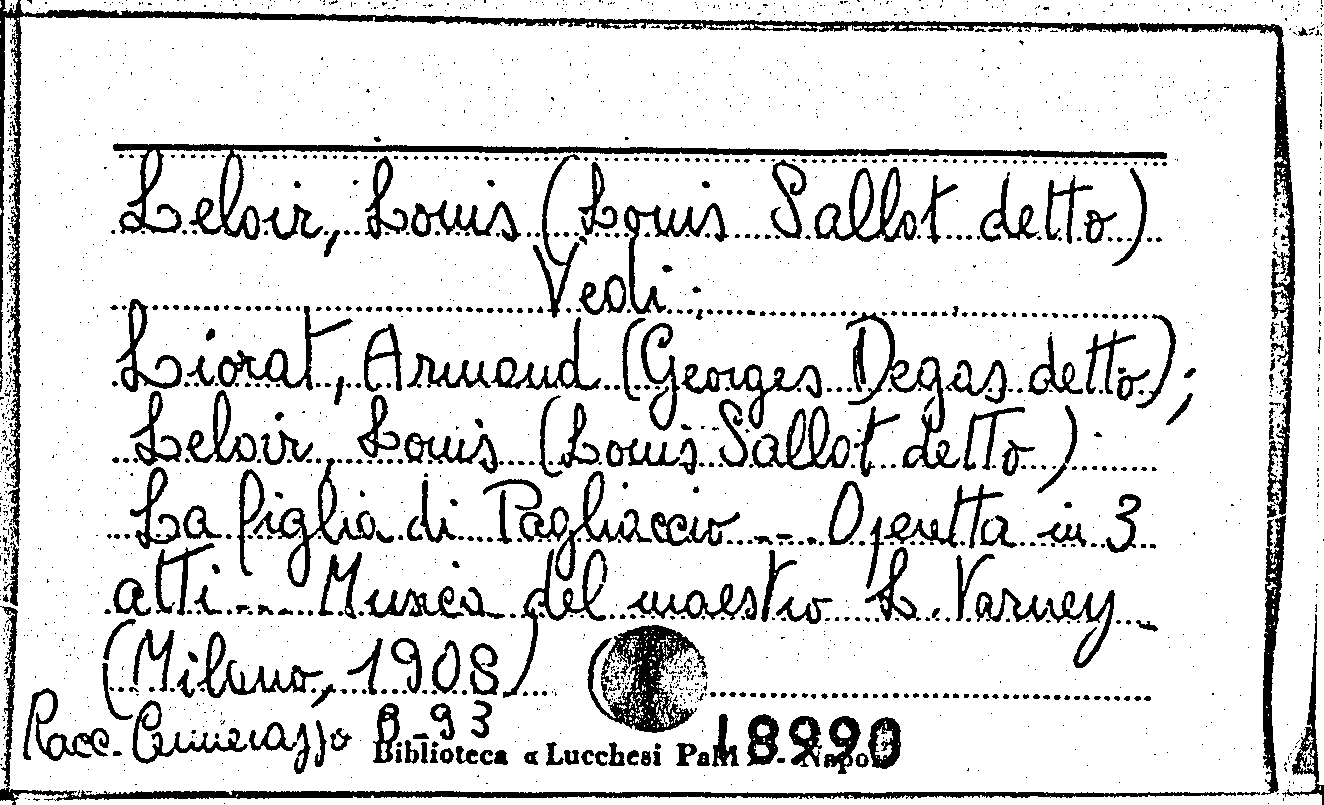 Leloir, Louis (Louis Sallot detto)
Vedi:
Liorat, Armand (Georges Degas detto);
Leloir, Louis (Louis Sallot detto)
La figlia di Pagliaccio --- Operetta in 3
atti --- Musica del maestro L. Varney -
(Milano, 1908) (
Racc. B-93
Biblioteca « Lucchesi Palli - Napoli
18990